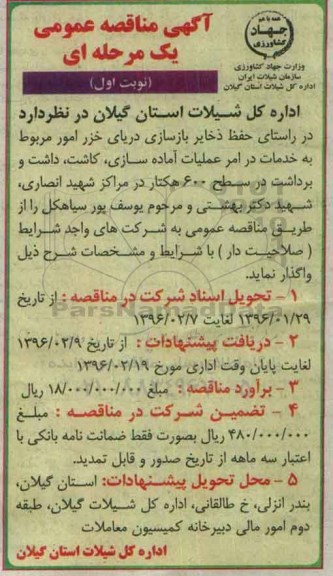 همه با هم
جهاد
کشاورزی
وزارت جهاد کشاورزی
سازمان شیلات ایران
اداره کل شیلات استان گیلان
آگهی مناقصه عمومی
یک مرحله ای
(نوبت اول)
اداره کل شیلات استان گیلان در نظردارد
در راستای حفظ ذخایر بازسازی دریای خزر امور مربوط
به خدمات در امر عملیات آماده سازی، کاشت، داشت و
برداشت در سطح ۶۰۰ هکتار در مراکز شهید انصاری،
شهید دکتر بهشتی و مرحوم یوسف پور سیاهکل را از
طریق مناقصه عمومی به شرکت های واجد شرایط
( صلاحیت دار ) با شرایط و مشخصات شرح ذیل
واگذار نماید.
۱ - تحویل اسناد شرکت در مناقصه : از تاریخ
۱۳۹۶/۰۱/۲۹ لغایت ۱۳۹۶/۰۲/۷
۲ - دریافت پیشنهادات : از تاریخ ۱۳۹۶/۰۲/۹
لغایت پایان وقت اداری مورخ ۱۳۹۶/۰۲/۱۹
۳ - برآورد مناقصه : مبلغ ۱۸/۰۰۰/۰۰۰/۰۰۰ ریال
۴ - تضمین شرکت در مناقصه : مبلغ
۴۸۰/۰۰۰/۰۰۰ ریال بصورت فقط ضمانت نامه بانکی با
اعتبار سه ماهه از تاریخ صدور و قابل تمدید.
۵ - محل تحویل پیشنهادات: استان گیلان،
بندر انزلی، خ طالقانی، اداره کل شیلات گیلان، طبقه
دوم امور مالی دبیرخانه کمیسیون معاملات
اداره کل شیلات استان گیلان